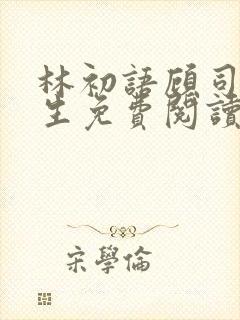 林初語顧司
生免費閱讀
宋學倫